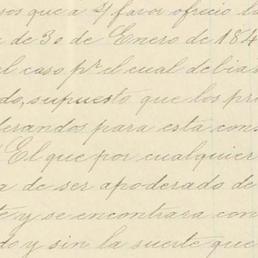 sos que a favor ofrecio la
de 30 de Enero de 184
el caso pr. el cual debia
do, supuesto que los pri
derandos para esta cons
El que por cualquier
a de ser apoderado de
te y se encontrara con
do y sin la suerte que